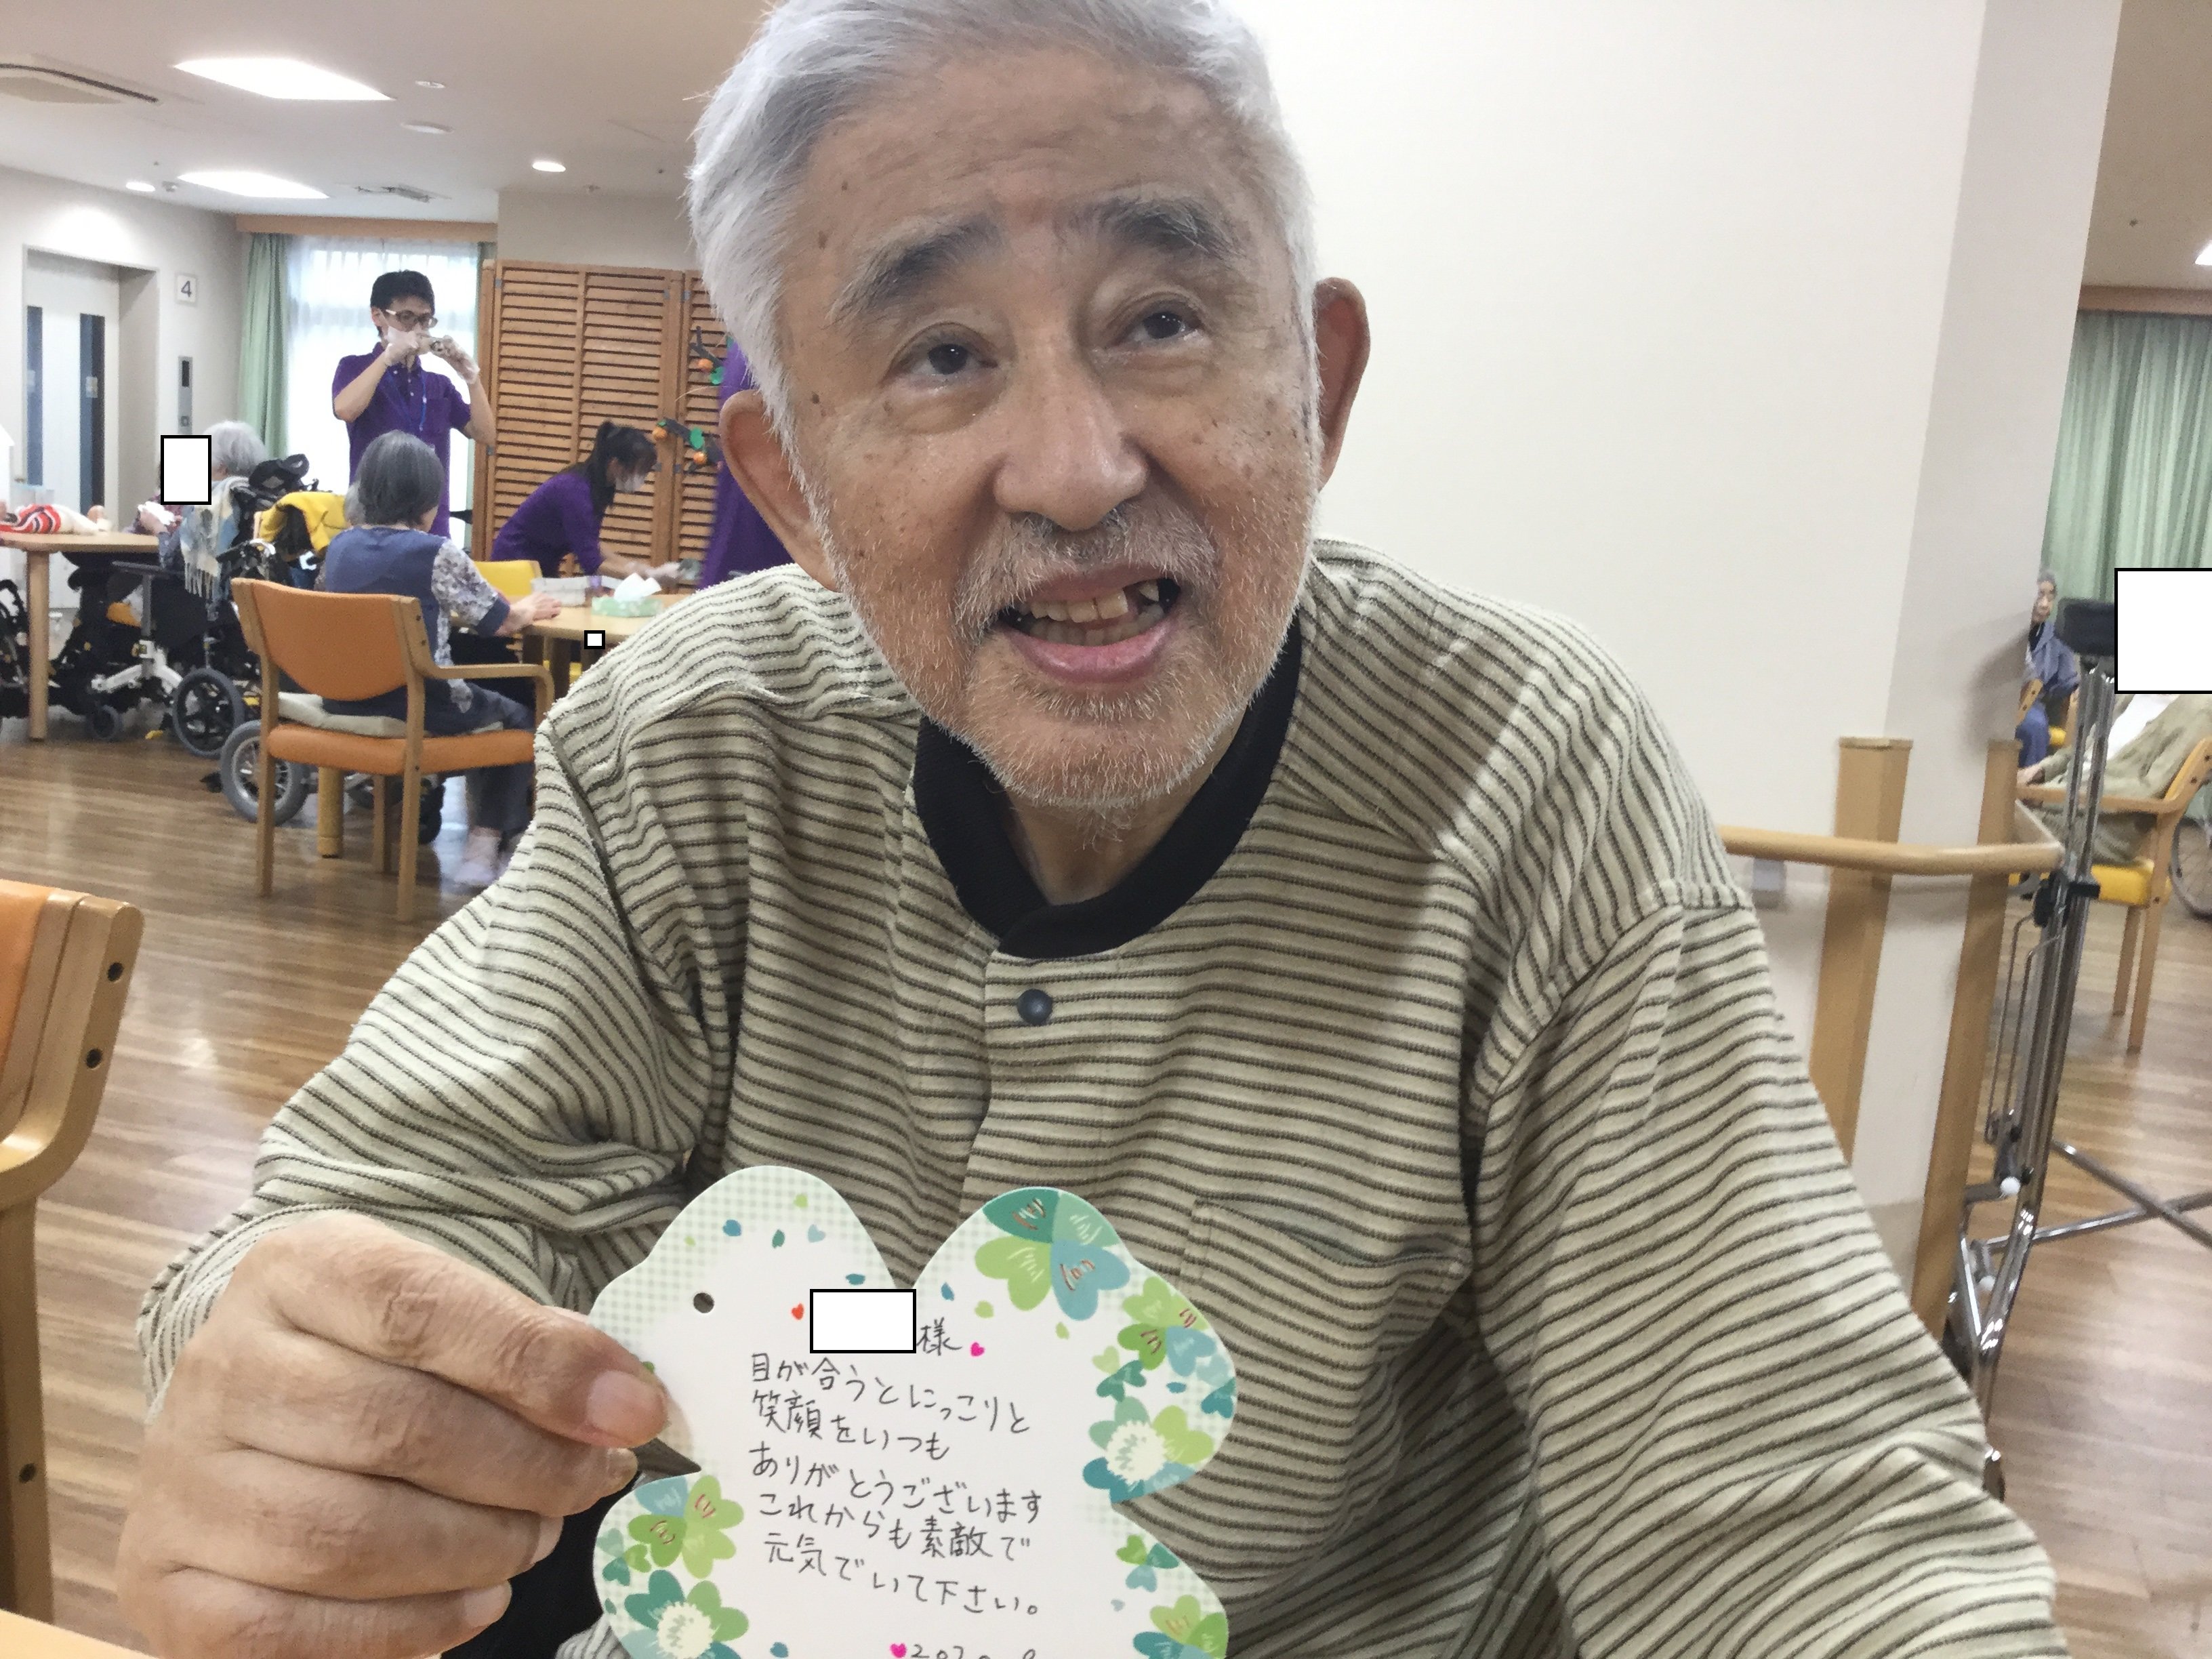 4
様
目が合うとにっこりと
笑顔をいつも
ありがとうございます
これからも素敵で
元気でいて下さい。